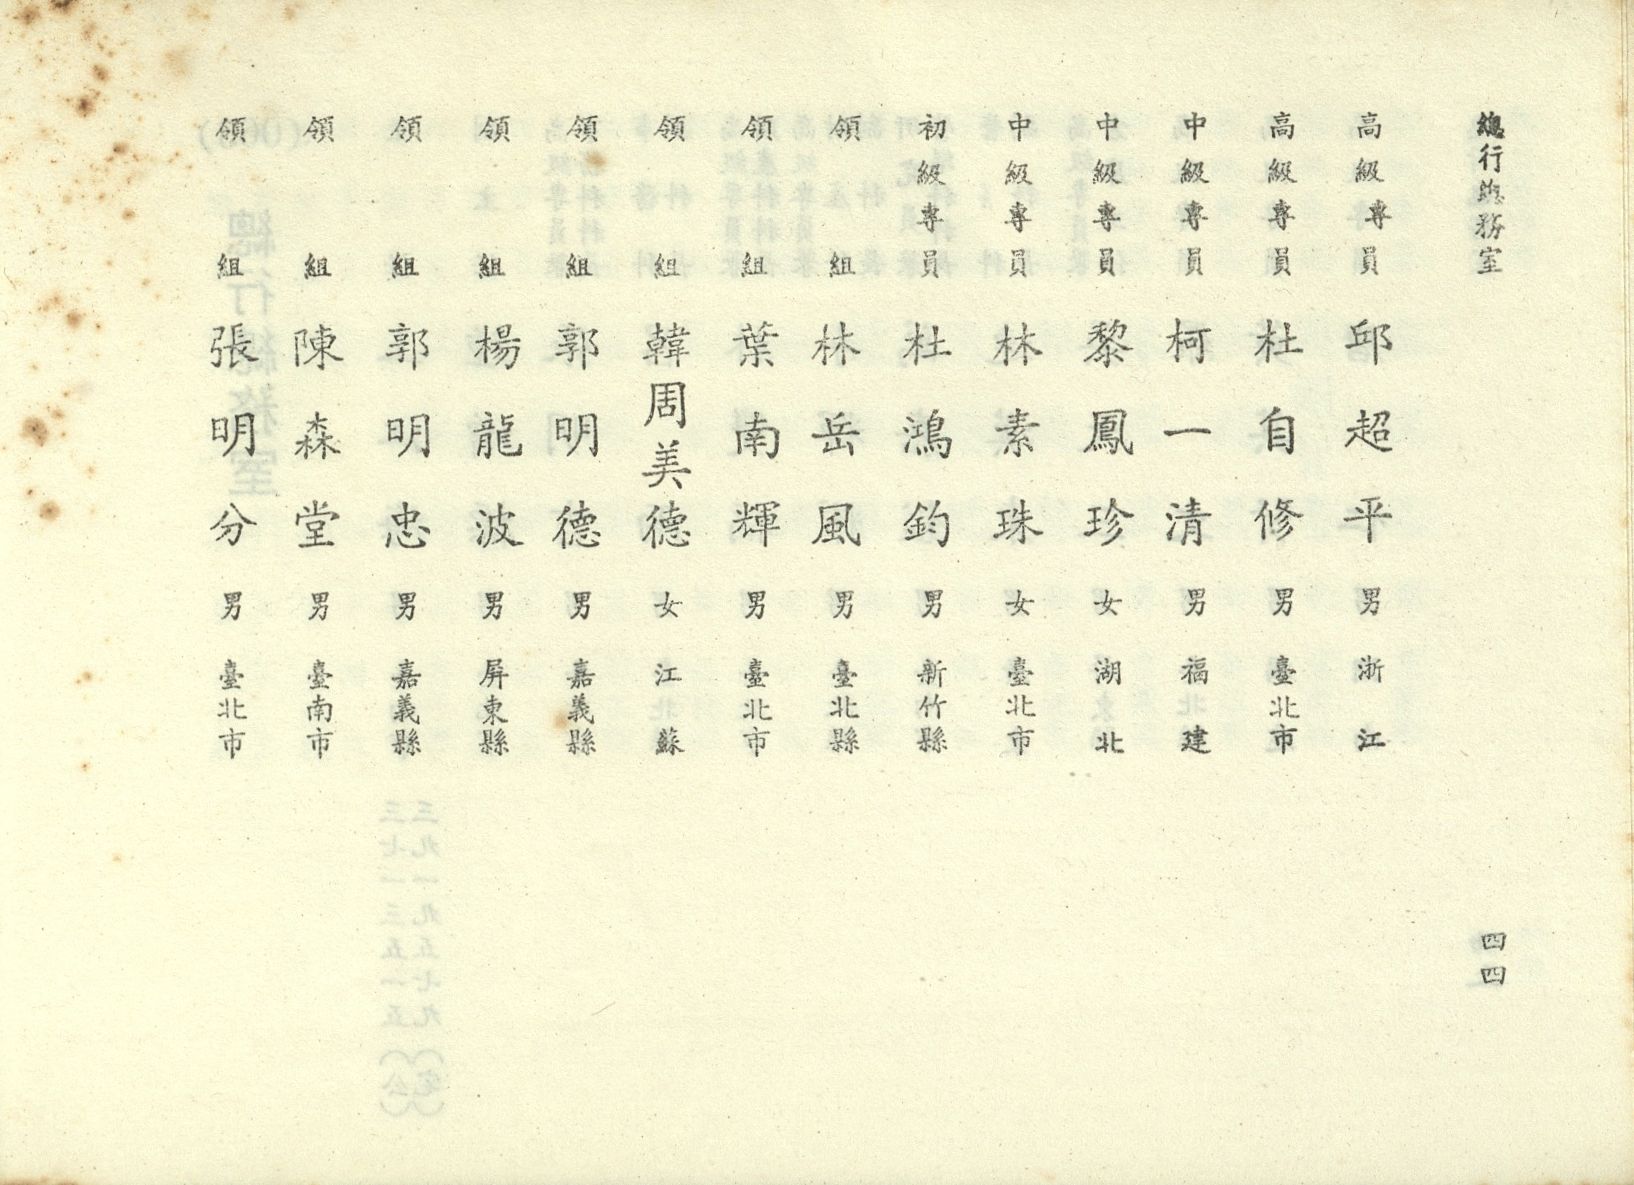 總行總務室
四四
高級專員 邱超平 男 浙江
高級專員 杜自修 男 臺北市
中級專員 柯一清 男 福建
中級專員 黎鳳珍 女 湖北
中級專員 林素珠 女 臺北市
初級專員 杜鴻鈞 男 新竹縣
領組 林岳風 男 臺北縣
領組 葉南輝 男 臺北市
領組 韓周美德 女 江蘇
領組 郭明德 男 嘉義縣
領組 楊龍波 男 屏東縣
領組 郭明忠 男 嘉義縣
領組 陳森堂 男 臺南市
領組 張明分 男 臺北市